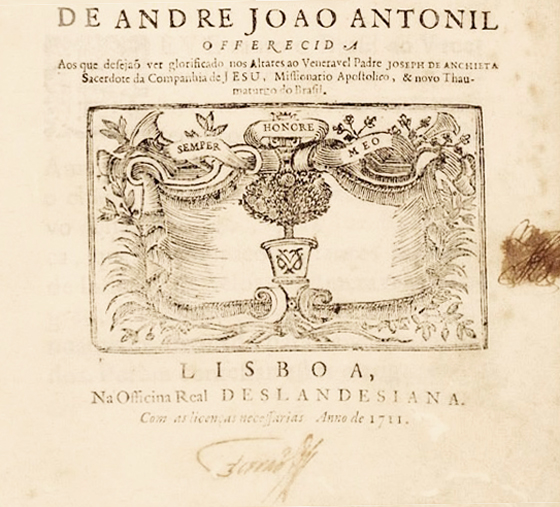 DE ANDRE JOAO ANTONIL
OFFERECIDA
Aos que desejaõ ver glorificado nos Altares ao Veneravel Padre JOSEPH DE ANCHIETA
Sacerdote da Companhia de JESU, Missionario Apostolico, & novo Thau-
maturgo do Brasil.
SEMPER
HONORE
MEO
LISBOA,
Na Officina Real DESLANDESIANA.
Com as licenças necessarias Anno de 1711.